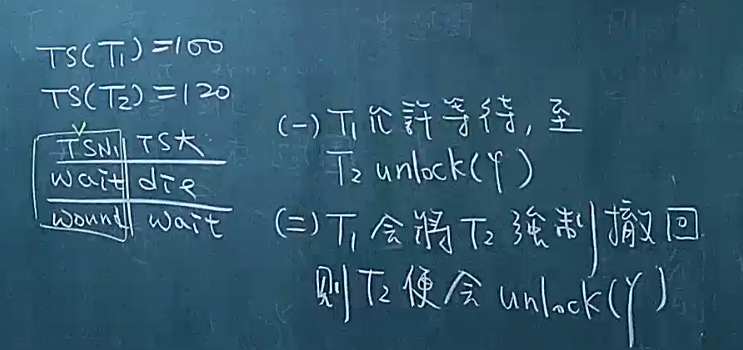 TS(T₁)=100
TS(T₂)=120
TS小 TS大
wait die
wound wait
(一) T₁允許等待, 至
T₂ unlock(Y)
(二) T₁会將T₂強制撤回
則T₂便会unlock(Y)